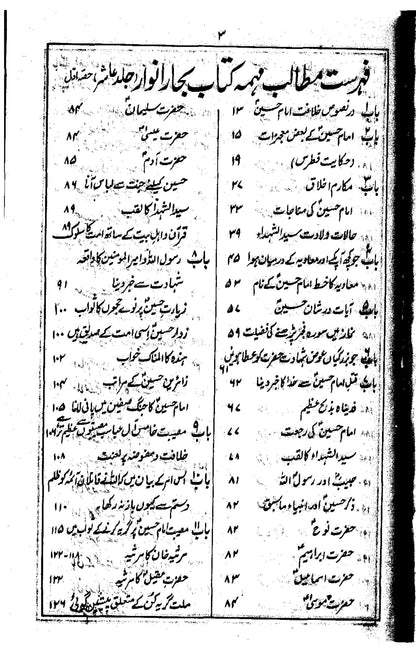 ۲
فہرست مطالب مہمہ کتاب بحار انوار (جلد عاشر) حصہ اول
باب ۱ در نصوص خلافت امام حسینؑ ۱۳
باب ۲ امام حسینؑ کے بعض معجزات ۱۵
(حکایت فطرس) ۱۹
باب ۳ مکارم اخلاق ۲۷
امام حسینؑ کی مناجات ۳۳
حالات ولادت سید الشہداء ۳۹
باب ۴ جو کچھ آپکے اور معاویہ کے درمیان ہوا ۴۵
معاویہ کا خط امام حسینؑ کے نام ۵۳
باب ۵ آیات در شان حسینؑ ۵۷
نماز میں سورہ فجر پڑھنے کی فضیلت ۵۹
باب ۶ جو بزرگیاں عوض شہادت حضرت کو عطا ہوئیں ۶۱
باب ۷ قتل امام حسینؑ سے خدا کا خبر دینا ۶۲
فدیناہ بذبح عظیم ۶۷
امام حسینؑ کی رجعت ۷۷
سید الشہداء کا لقب ۷۸
حبیبؑ اور رسولؐ اللہ ۸۱
ذکر حسینؑ اور انبیاء ماسبق ۸۲
حضرت نوحؑ ۸۲
حضرت ابراہیمؑ ۸۲
حضرت اسماعیلؑ ۸۳
حضرت موسیٰؑ ۸۴
حضرت سلیمانؑ ۸۴
حضرت عیسیٰؑ ۸۴
حضرت آدمؑ ۸۵
حسینؑ کیلئے جنت سے لباس آنا ۸۶
سید الشہدا کا لقب ۸۹
قرآن و اہل بیت کے ساتھ امت کا سلوک ۸۹
باب ۸ رسول اللہ و امیر المومنین کا واقعہ
شہادت سے خبر دینا ۹۱
زیارت حسینؑ پر نوے حجوں کا ثواب ۱۰۰
زوار حسینؑ اسی امت کے صدیق ہیں ۱۰۰
ہندہ کا المناک خواب ۱۰۲
زائرین حسینؑ کے مراتب ۱۰۴
امام حسینؑ کا جنگ صفین میں پانی لانا ۱۰۵
باب ۹ مصیبت خامس آل عبا سب مصیبتوں سے عظیم تر ۱۰۶
خلافت و مفوضہ پر لعنت ۱۰۸
باب ۱۰ اس امر کے بیان میں کہ اللہ نے قاتلان ائمہ کو ظلم
و ستم سے کیوں باز نہ رکھا ۱۱۰
باب ۱۱ مصیبت امام حسینؑ پر گریہ کرنے کے ثواب میں ۱۱۵
مرثیہ خان کا مرثیہ ۱۱۸-۱۲۲
حضرت عقیل کا مرثیہ ۱۲۳
ملت گریہ کن کے متعلق پیشین گوئی ۱۲۶